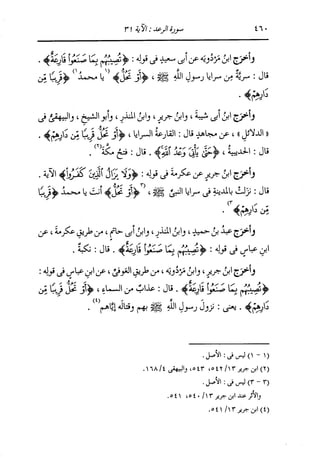 ٤٦٠ سورة الرعد : الآية ٣١
وأخرج ابنُ مَرْدُويَه عن أبى سعيدٍ فى قولِه : ﴿تُصِيبُهُم بِمَا صَنَعُوا۟ قَارِعَةٌ﴾ .
قال : سريَّةٌ مِن سرايا رسولِ اللهِ ﷺ ، ﴿أَوْ تَحُلُّ﴾ (١يا محمدُ١) ﴿قَرِيبًا مِّن
دَارِهِمْ﴾ .
وأخرج ابنُ أبى شيبةَ ، وابنُ جريرٍ ، وابنُ المنذرِ ، وأبو الشيخِ ، والبيهقىُّ فى
« الدلائلِ » ، عن مجاهدٍ قال : القارعةُ السرايا ، ﴿أَوْ تَحُلُّ قَرِيبًا مِّن دَارِهِمْ﴾ .
قال : الحديبيةُ ، ﴿حَتَّىٰ يَأْتِىَ وَعْدُ ٱللَّهِ﴾ . قال : فتحُ مكةَ(٢) .
وأخرج ابنُ جريرٍ عن عكرمةَ فى قولِه : ﴿وَلَا يَزَالُ ٱلَّذِينَ كَفَرُوا۟﴾ الآية .
قال : نزَلت بالمدينةِ فى سرايا النبىِّ ﷺ ، (٣﴿أَوْ تَحُلُّ﴾ أنت يا محمدُ ﴿قَرِيبًا
مِّن دَارِهِمْ﴾٣) .
وأخرج عبدُ بنُ حميدٍ ، وابنُ المنذرِ ، وابنُ أبى حاتمٍ ، مِن طريقِ عكرمةَ ، عن
ابنِ عباسٍ فى قولِه : ﴿تُصِيبُهُم بِمَا صَنَعُوا۟ قَارِعَةٌ﴾ . قال : نكبةٌ .
وأخرج ابنُ جريرٍ ، وابنُ مَرْدُويَه ، مِن طريقِ العَوْفىِّ ، عن ابنِ عباسٍ فى قولِه :
﴿تُصِيبُهُم بِمَا صَنَعُوا۟ قَارِعَةٌ﴾ . قال : عذابٌ مِن السماءِ ، ﴿أَوْ تَحُلُّ قَرِيبًا مِّن
دَارِهِمْ﴾ . يعنى : نزولُ رسولِ اللهِ ﷺ بهم وقتالُه إيَّاهم(٤) .
(١ - ١) ليس فى : الأصل .
(٢) ابن جرير ١٣/ ٥٤٢، ٥٤٣، والبيهقى ٤/ ١٦٨.
(٣ - ٣) ليس فى : الأصل .
والأثر عند ابن جرير ١٣/ ٥٤٠، ٥٤١.
(٤) ابن جرير ١٣/ ٥٤١.